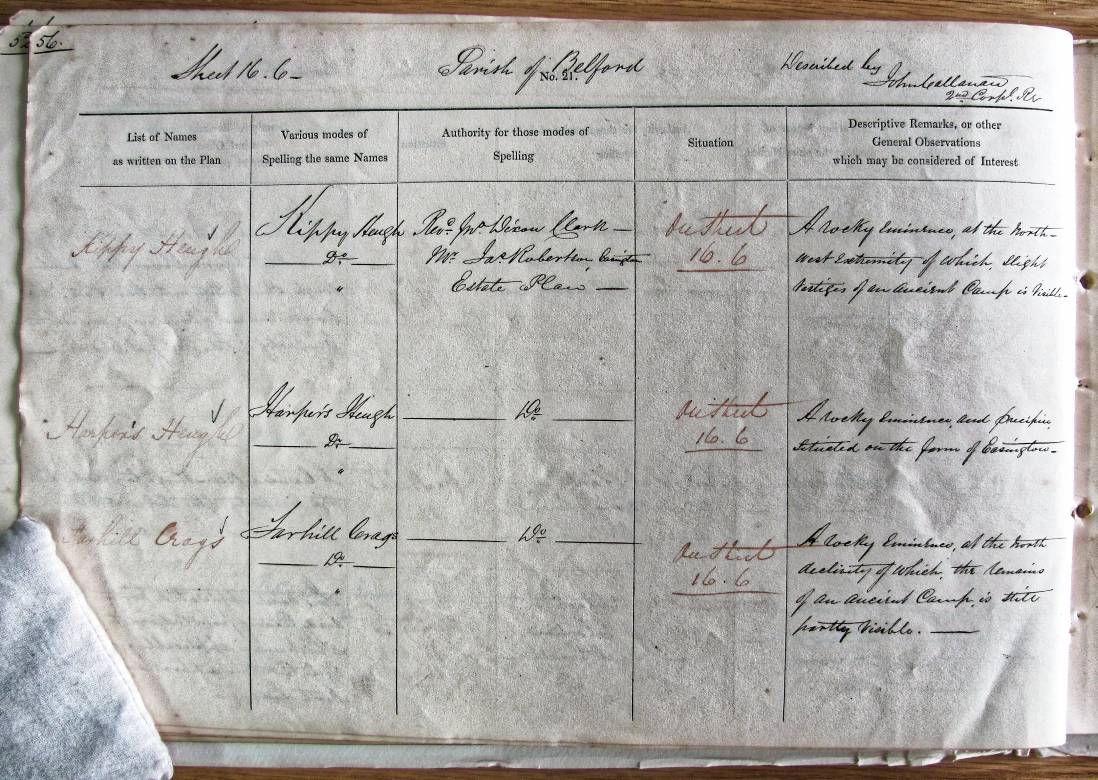 56.
Sheet 16.6 - Parish of Belford No. 21. Described by
John Callanan
2nd Corpl. RE
List of Names
as written on the Plan
Various modes of
Spelling the same Names
Authority for those modes of
Spelling
Situation
Descriptive Remarks, or other
General Observations
which may be considered of Interest
Kippy Heugh
Kippy Heugh
Do
"
Revd. Jno. Dixon Clark —
Mr. Jas. Robertson Easington
Estate Plan —
On Sheet
16.6
A rocky Eminence, at the North-
west Extremity of Which, Slight
Vestiges of an Ancient Camp is Visible-
Harper's Heugh
Harper's Heugh
Do
"
Do
On Sheet
16.6
A rocky Eminence and precipice,
Situated on the farm of Easington-
Farhill Crags
Farhill Crags
Do
"
Do
On Sheet
16.6
A rocky Eminence, at the North
declivity of Which, the remains
of an ancient Camp, is still
partly Visible. —